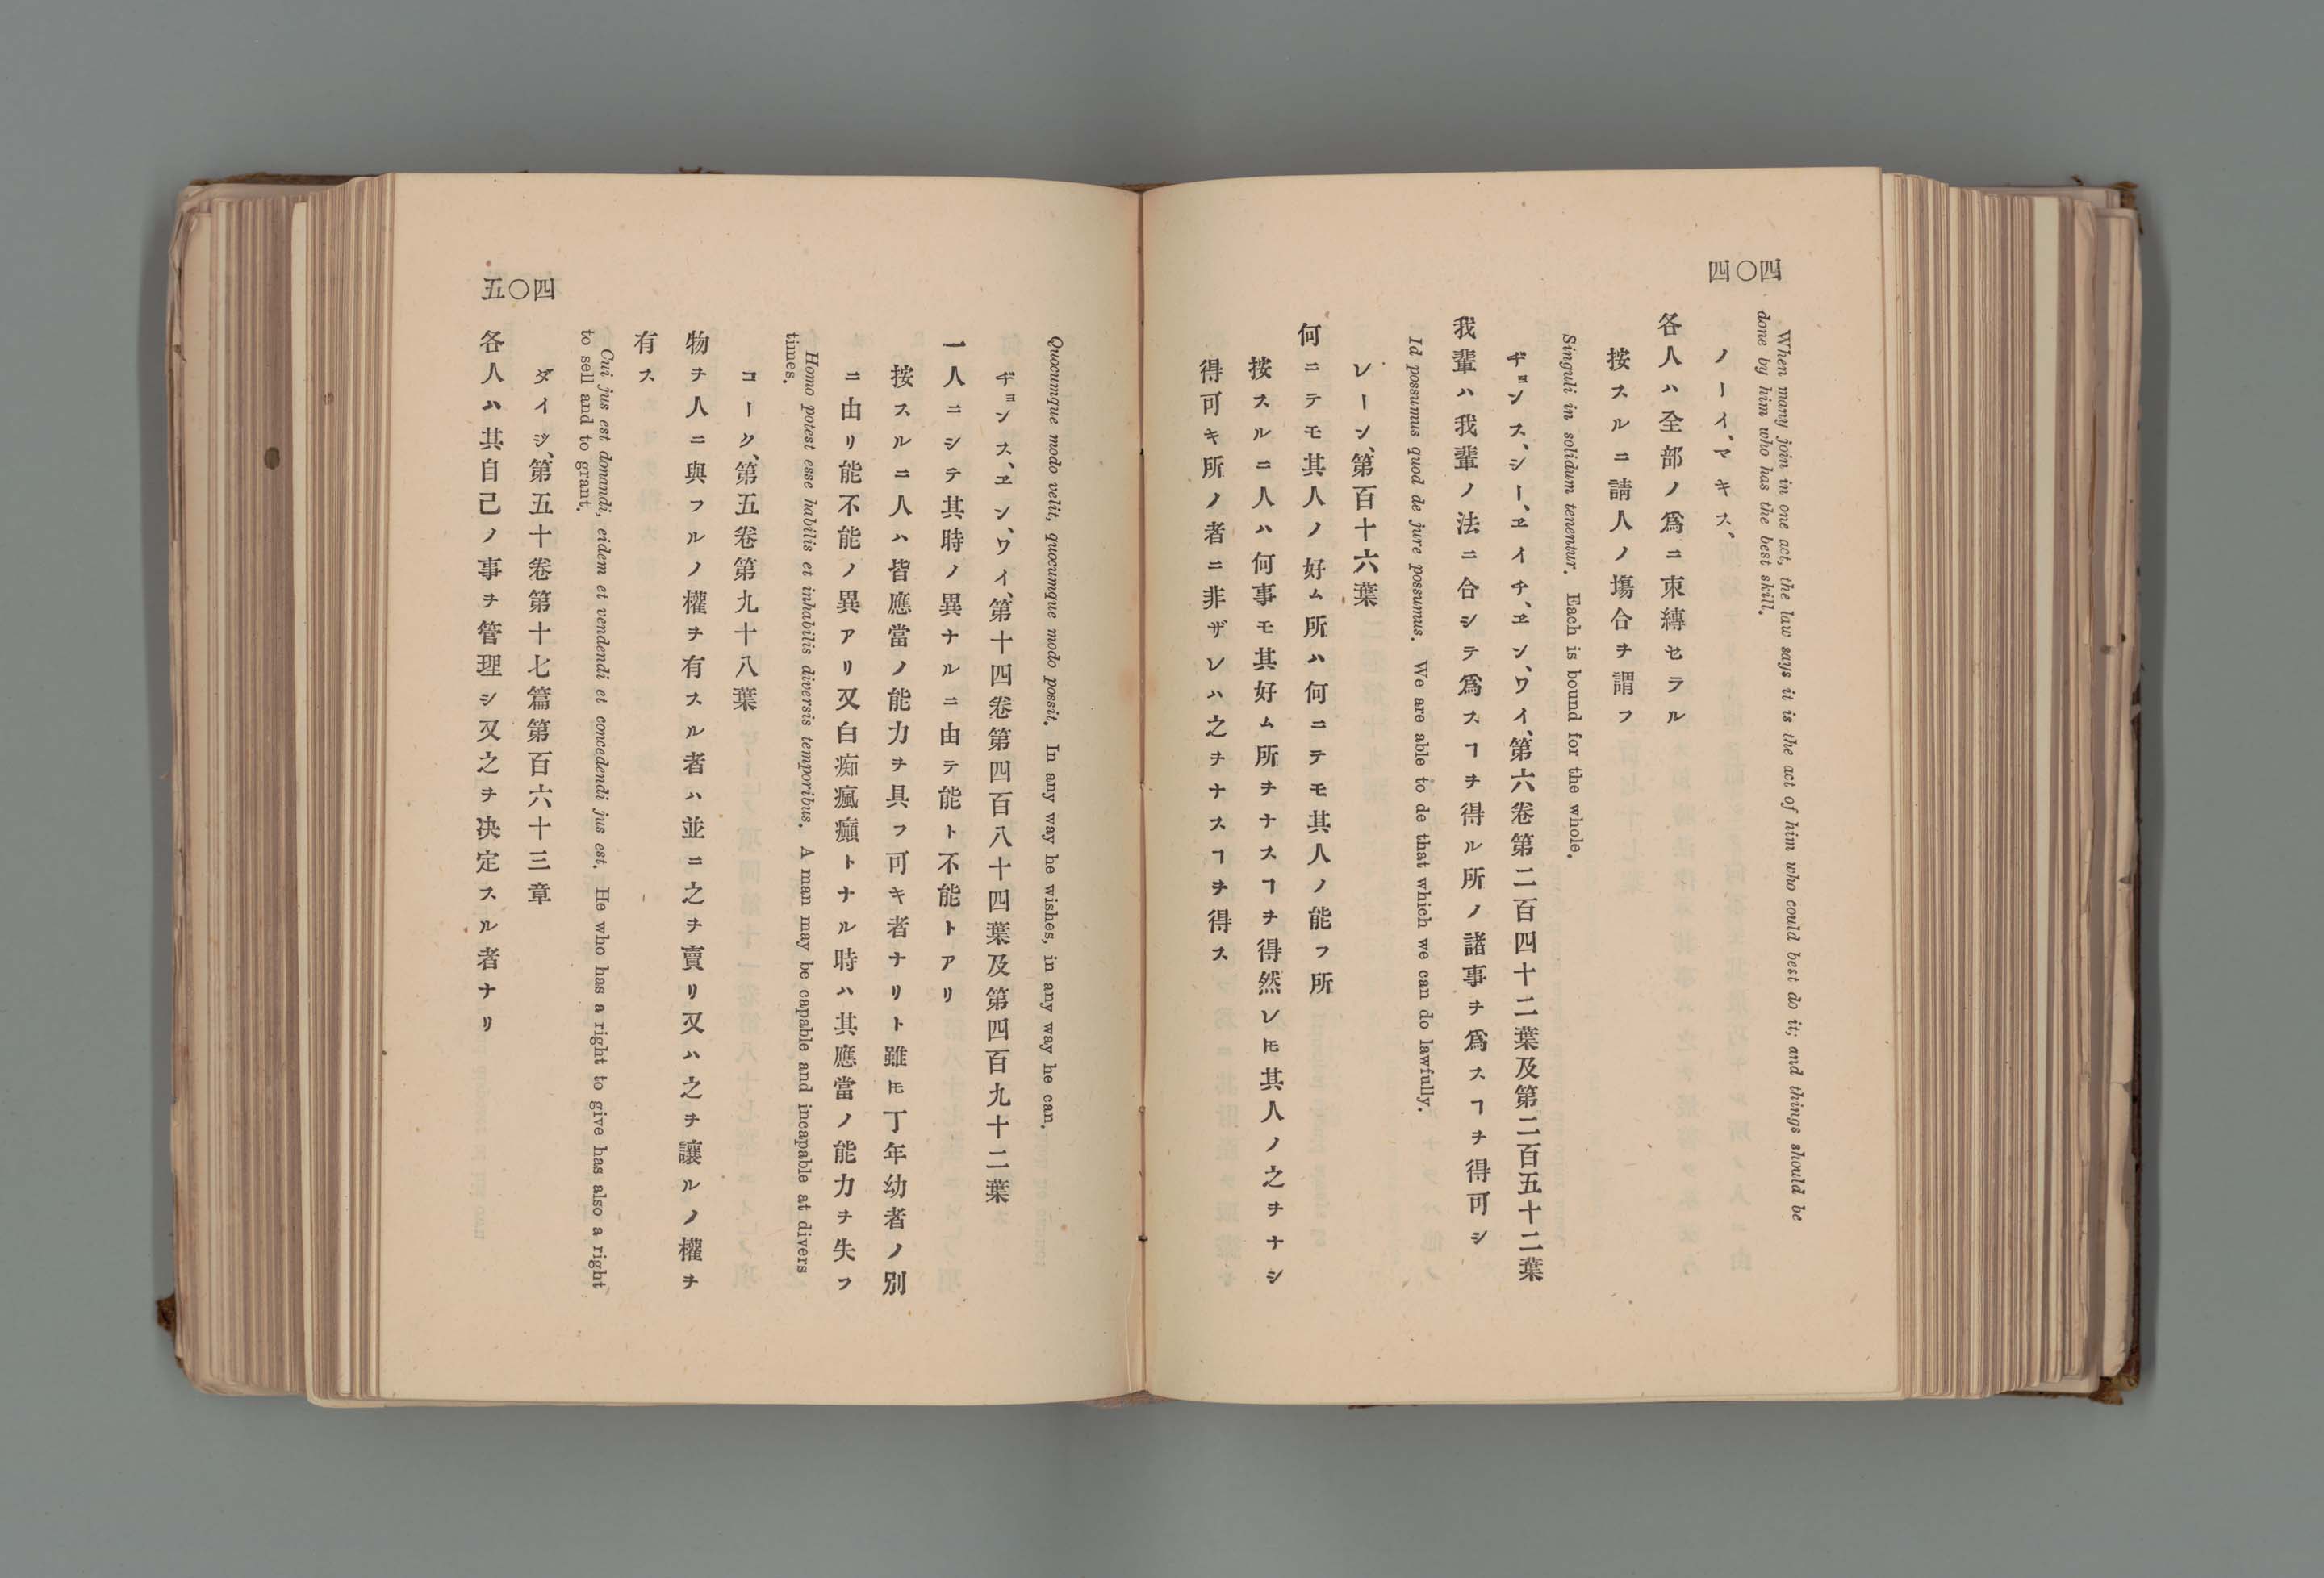 四〇四
When many join in one act, the law says it is the act of him who could best do it; and things should be
done by him who has the best skill.
ノーイ、マキス、
各人ハ全部ノ爲ニ束縛セラル
按スルニ請人ノ塲合ヲ謂フ
Singuli in solidum tenentur. Each is bound for the whole.
ヂョンス、シー、ヱイチ、ヱン、ワイ、第六卷第二百四十二葉及第二百五十二葉
我輩ハ我輩ノ法ニ合シテ爲スヿヲ得ル所ノ諸事ヲ爲スヿヲ得可シ
Id possumus quod de jure possumus. We are able to de that which we can do lawfully.
レーン、第百十六葉
何ニテモ其人ノ好ム所ハ何ニテモ其人ノ能フ所
按スルニ人ハ何事モ其好ム所ヲナスヿヲ得然レ𪜈其人ノ之ヲナシ
得可キ所ノ者ニ非ザレハ之ヲナスヿヲ得ス
五〇四
Quocumque modo velit, quocumque modo posit. In any way he wishes, in any way he can.
ヂョンス、ヱン、ワイ、第十四卷第四百八十四葉及第四百九十二葉
一人ニシテ其時ノ異ナルニ由テ能ト不能トアリ
按スルニ人ハ皆應當ノ能力ヲ具フ可キ者ナリト雖𪜈丁年幼者ノ別
ニ由リ能不能ノ異アリ又白痴瘋癲トナル時ハ其應當ノ能力ヲ失フ
Homo potest esse habilis et inhabilis diversis temporibus. A man may be capable and incapable at divers
times.
コーク、第五卷第九十八葉
物ヲ人ニ與フルノ權ヲ有スル者ハ並ニ之ヲ賣リ又ハ之ヲ讓ルノ權ヲ
有ス
Cui jus est donandi, eidem et vendendi et concedendi jus est. He who has a right to give has also a right
to sell and to grant.
ダイジ、第五十卷第十七篇第百六十三章
各人ハ其自己ノ事ヲ管理シ又之ヲ决定スル者ナリ